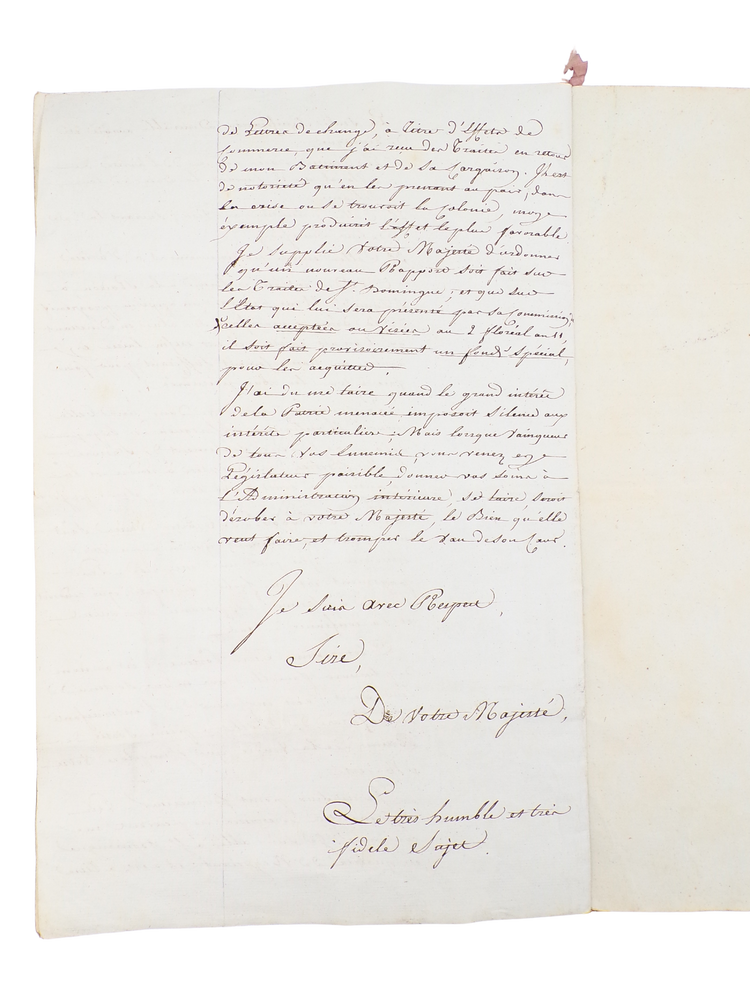 de Lettres de change, à Titre d'Effets de
Commerce, que j'ai reçu des Traites en retour
de mon Batiment et de sa Cargaison. Il est
de notorieté qu'en les prenant au pair, dans
la crise ou se trouvoit la Colonie, mon
éxemple produisit l'effet le plus favorable.
Je supplie Votre Majesté d'ordonner
qu'un nouveau Rapport soit fait sur
les Traites de St. Domingue, et que sur
l'Etat qui lui sera présenté par sa Commission,
celles acceptées ou visées au 2 floréal an 11,
il soit fait provisoirement un fond spécial,
pour les acquitter.
J'ai du me taire quand le grand intérêt
de la Patrie menacée imposoit silence aux
intérêts particuliers; Mais lorsque vainqueur
de tous vos Ennemis, vous venez en
Législateur paisible, donner vos soins à
l'Administration intérieure, se taire seroit
dérober à votre Majesté, le Bien qu'elle
veut faire, et tromper le vœu de son Cœur.
Je suis avec Respect,
Sire,
De Votre Majesté,
Le très humble et très
fidele Sujet.